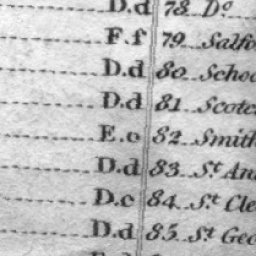 D.d 78 Do
F.f 79 Salfo
D.d 80 Schoo
D.d 81 Scotc
E.c 82 Smith
D.d 83 St An
D.c 84 St Cle
D.d 85 St Geo